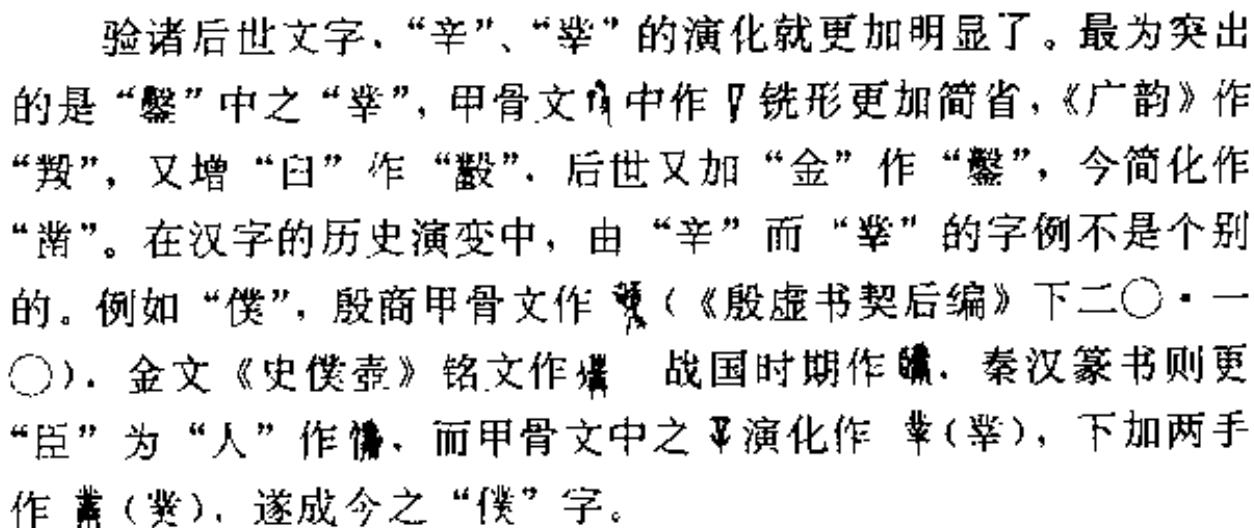 验诸后世文字，“辛”、“丵”的演化就更加明显了。最为突出
的是“鑿”中之“丵”，甲骨文中作铣形更加简省，《广韵》作
“”，又增“臼”作“”。后世又加“金”作“鑿”，今简化作
“凿”。在汉字的历史演变中，由“辛”而“丵”的字例不是个别
的。例如“僕”，殷商甲骨文作（《殷虚书契后编》下二〇·一
〇）。金文《史僕壶》铭文作 战国时期作。秦汉篆书则更
“臣”为“人”作。而甲骨文中之演化作（丵），下加两手
作（菐），遂成今之“僕”字。